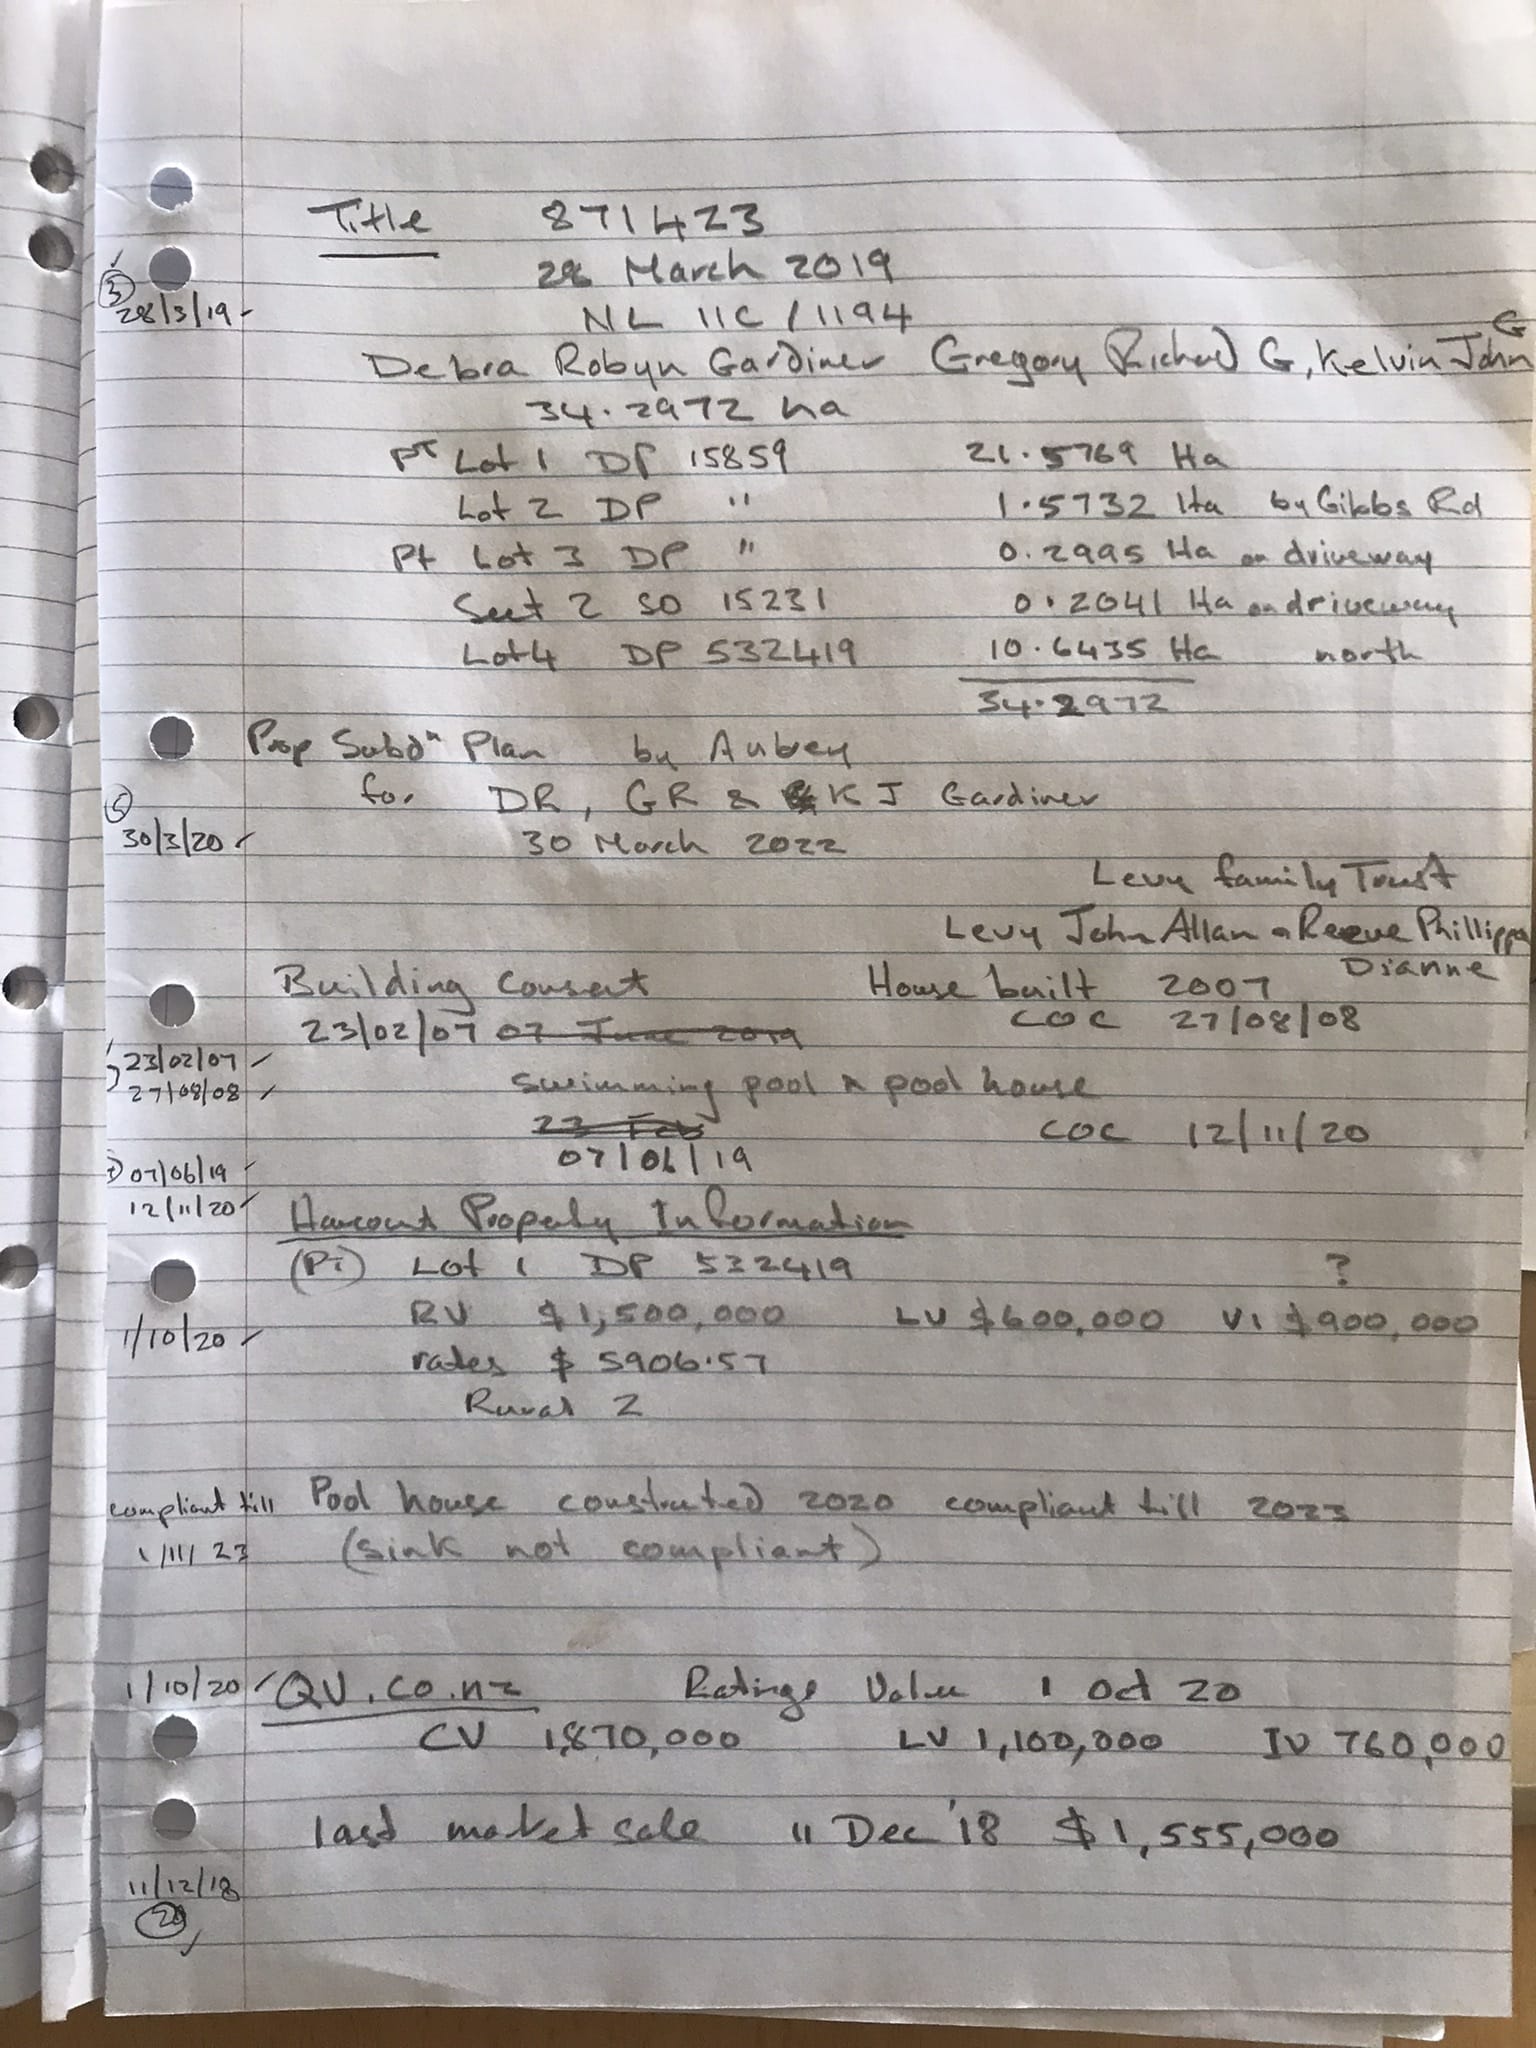 Title 871423
28 March 2019
③
28/3/19
NL 11C / 1194
G
Debra Robyn Gardiner Gregory Richard G, Kelvin John
34.2972 ha
PT Lot 1 DP 15859 21.5769 Ha
Lot 2 DP " 1.5732 Ha by Gibbs Rd
Pt Lot 3 DP " 0.2995 Ha on driveway
Sect 2 SO 15231 0.2041 Ha on driveway
Lot 4 DP 532419 10.6435 Ha north
34.2972
Prop Subdn Plan by Aubrey
for DR, GR & KJ Gardiner
30/3/20 30 March 2022
Levy family Trust
Levy John Allan & Reeve Phillippa
Dianne
Building Consent House built 2007
23/02/07 07 June 2019 COC 27/08/08
23/02/07
27/08/08
swimming pool & pool house
23 Feb COC 12/11/20
07/06/19
07/06/19
12/11/20
Harcourt Property Information
(Pt) Lot 1 DP 532419 ?
1/10/20 RV $1,500,000 LV $600,000 VI $900,000
rates $5906.57
Rural 2
compliant till Pool house constructed 2020 compliant till 2023
1/11/23 (sink not compliant)
1/10/20 QV.co.nz Ratings Value 1 Oct 20
CV 1,870,000 LV 1,100,000 IV 760,000
last market sale 11 Dec '18 $1,555,000
11/12/18